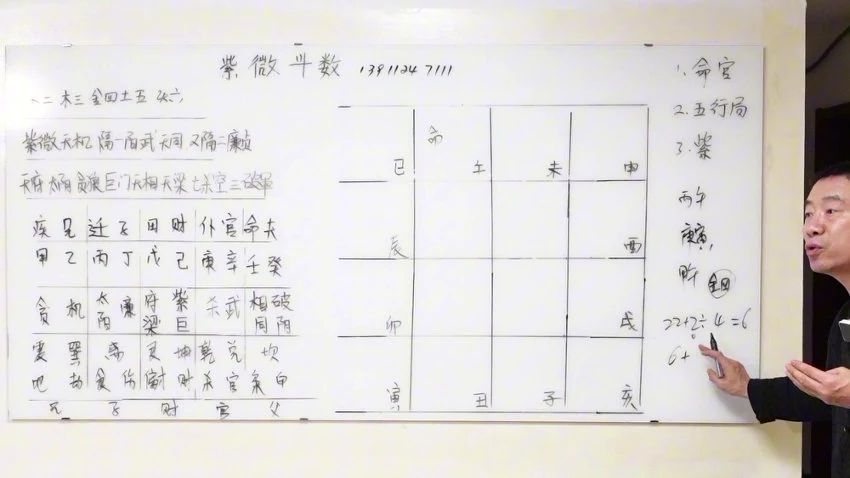 紫微斗数 13911247111
水二木三金四土五火六
紫微天机 隔一阳武天同 又隔二廉贞
天府太阴贪狼巨门天相天梁七杀空三破军
疾兄迁子田财仆官命夫
甲乙丙丁戊己庚辛壬癸
贪机太阳廉府梁紫巨杀武相同破阴
震巽离艮坤乾兑坎
兄子财官父
命
巳午未申
辰酉
卯戌
寅丑子亥
1.命宫
2.五行局
3.紫
丙午
庚寅,
金四
22+2÷4=6
6+